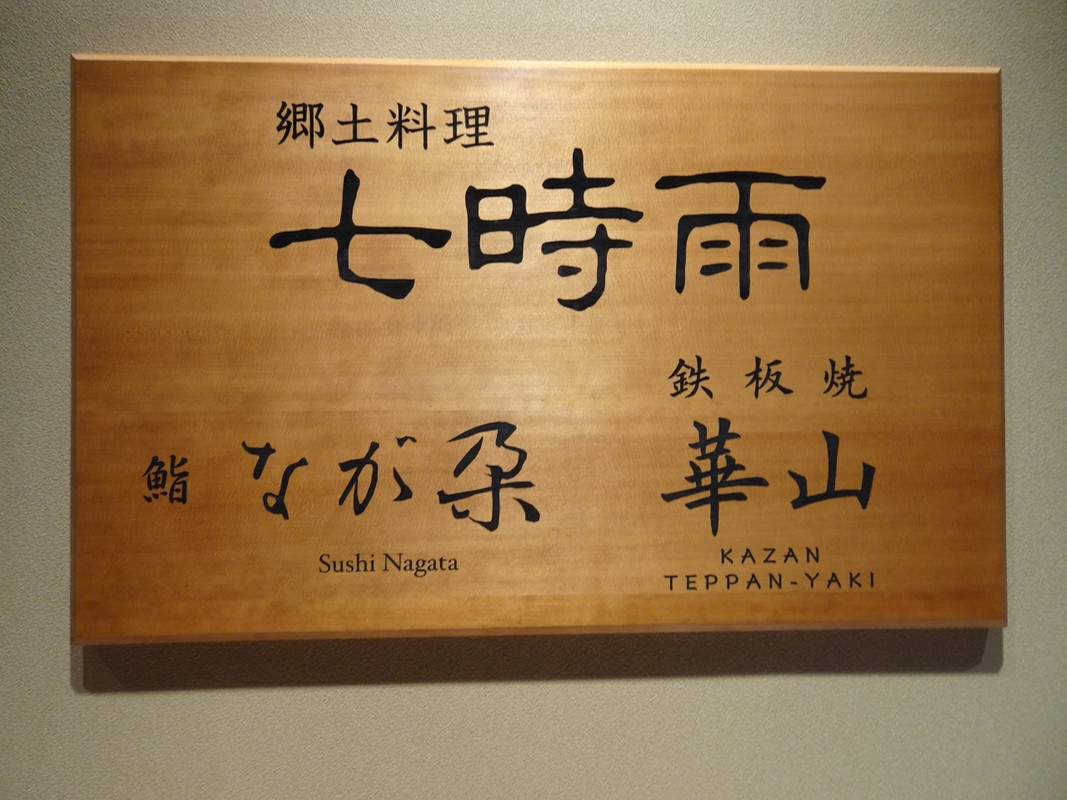 郷土料理
七時雨
鮨 なが朶
Sushi Nagata
鉄板焼
華山
KAZAN
TEPPAN-YAKI